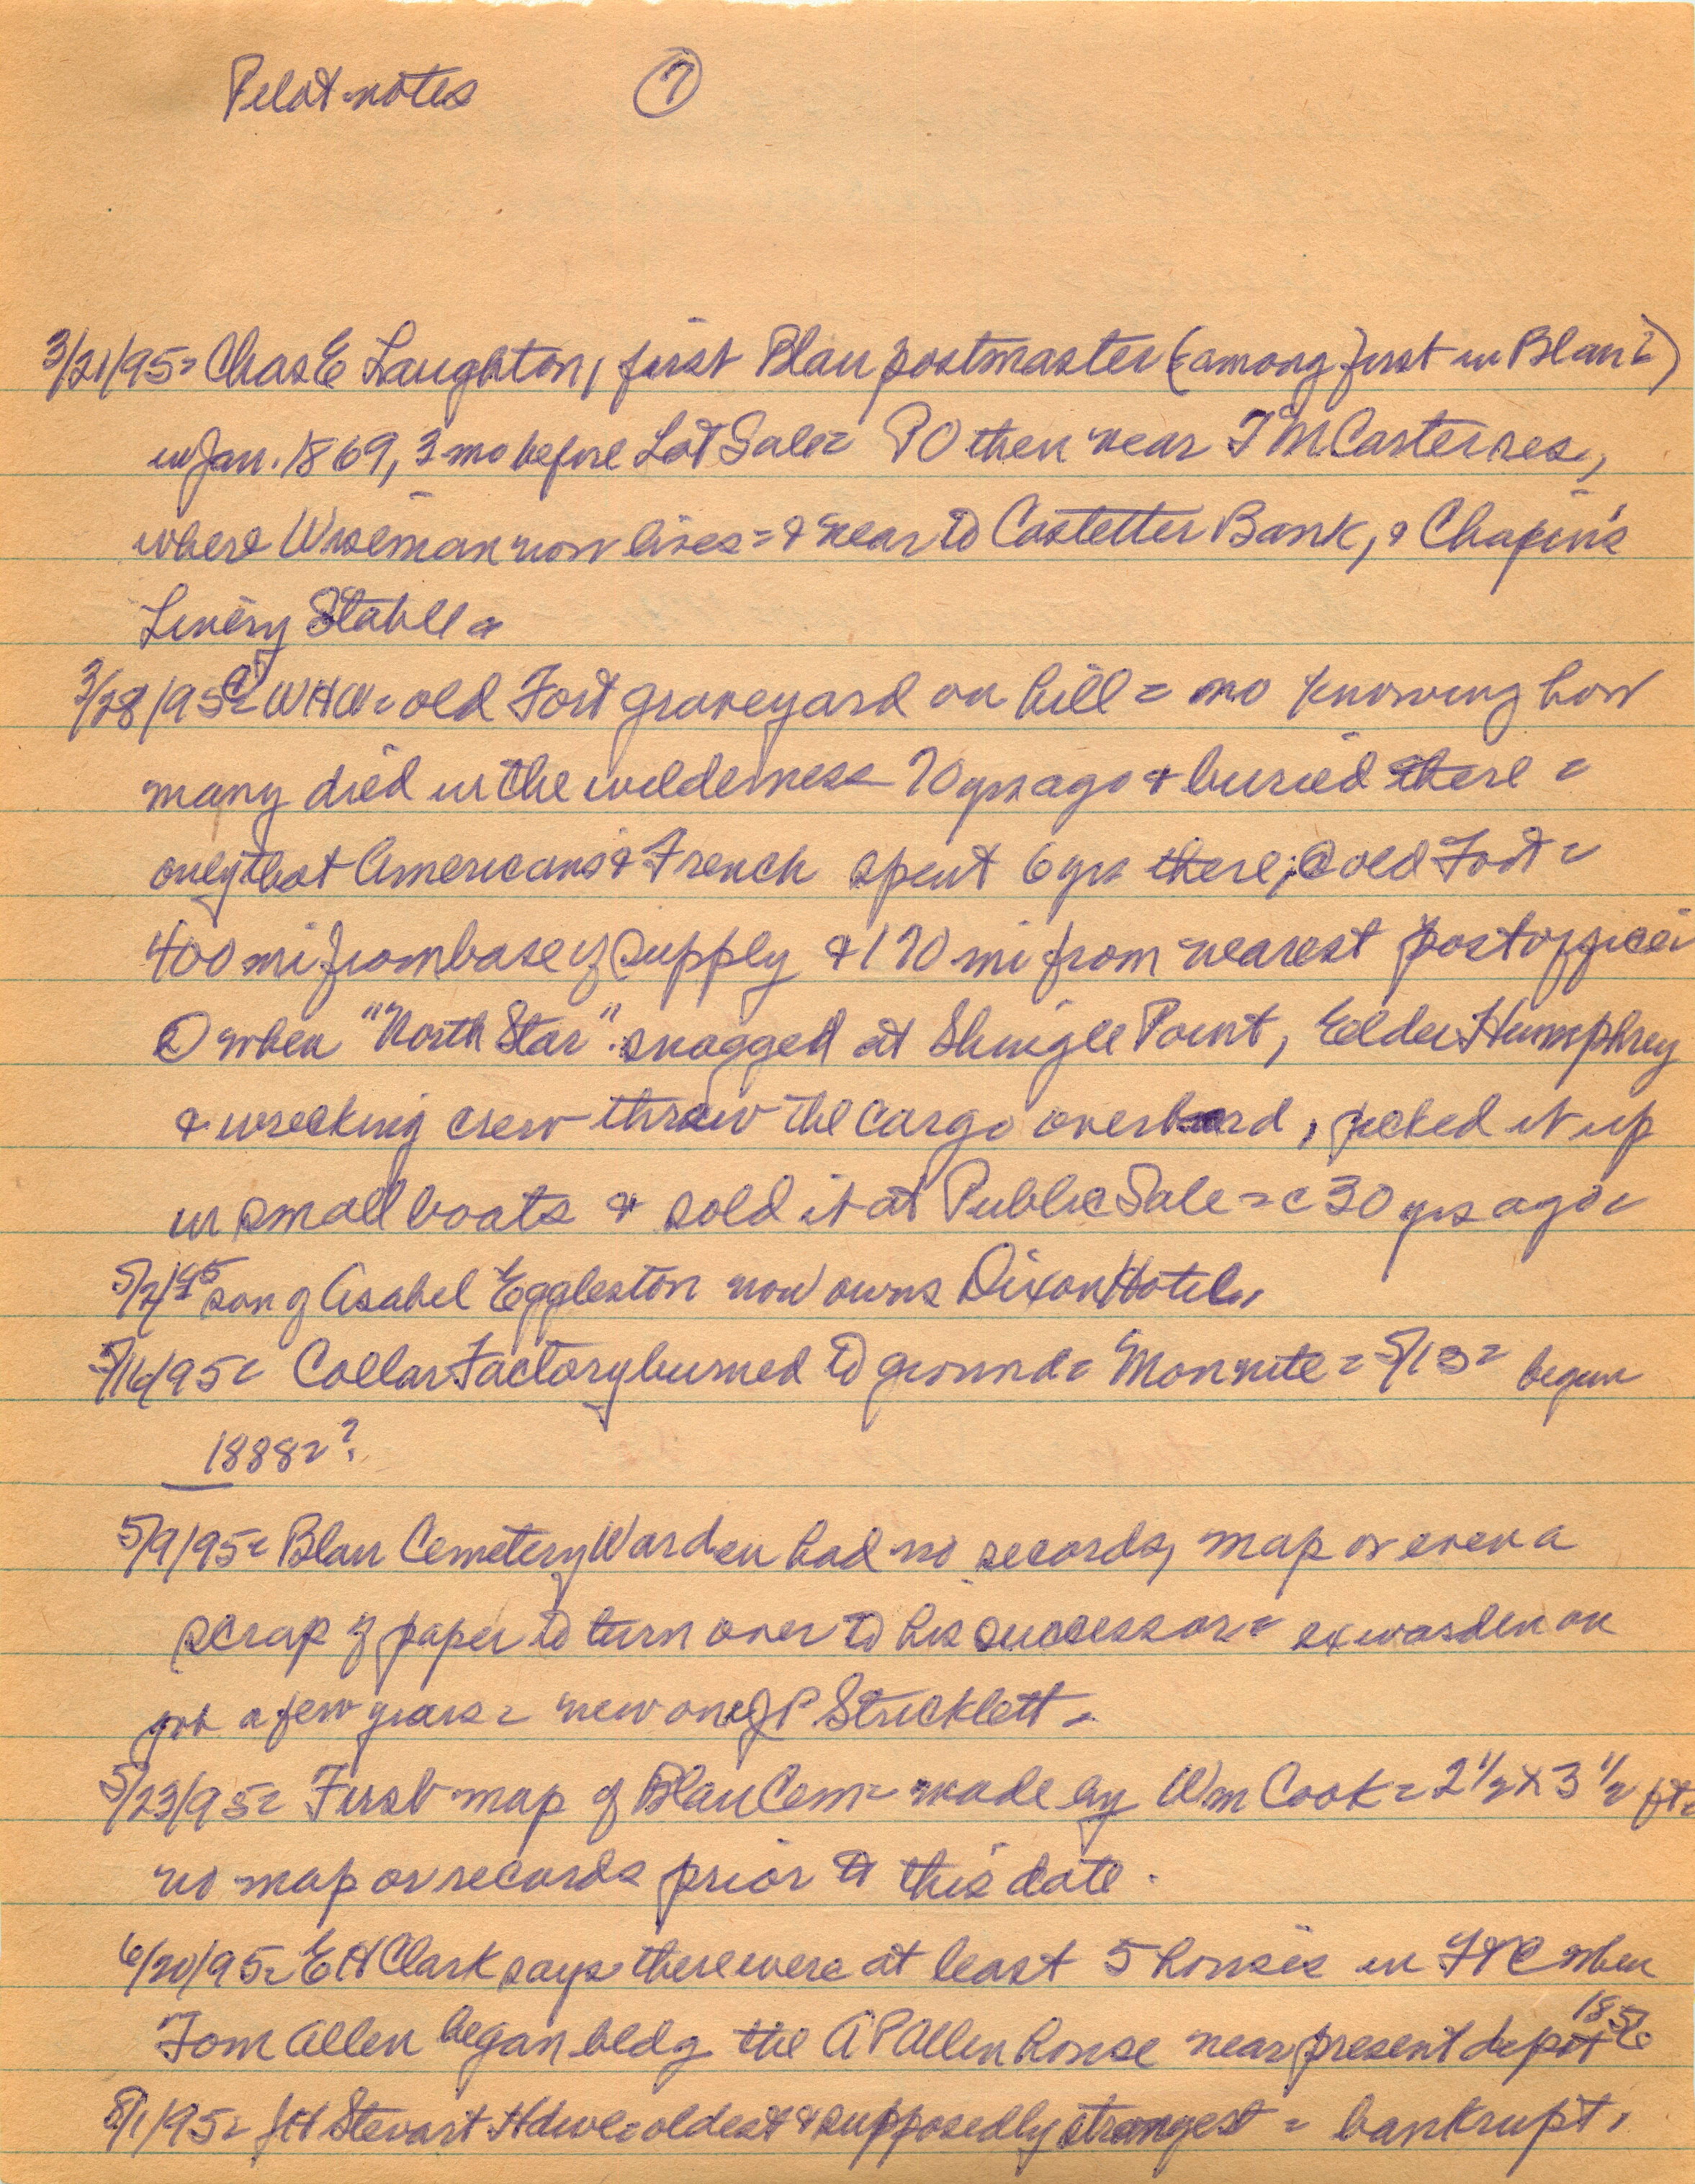 Pilot notes 7
3/21/95= Chas E Laughton, first Blair postmaster (among first in Blair?)
in Jan. 1869, 3 mo before Lot Sale= PO then near T M Carter res,
where Wiseman now lives= & near to Castetter Bank, & Chapin's
Livery Stable=
3/28/95= WHW= old Fort graveyard on hill= no knowing how
many died in the wilderness 70 yrs ago & buried there =
only that Americans & French spent 6 yrs there; @ old Fort =
400 mi from base of supply & 170 mi from nearest postoffice;
when "North Star" snagged at Shingle Point, Elder Humphrey
& wrecking crew threw the cargo overboard, picked it up
in small boats & sold it at Public Sale = c 30 yrs ago=
5/2/95 son of Asahel Eggleston now owns Dixon Hotel=
5/16/95= Collar Factory burned to ground= Mon nite = 5/13= begun
1888=?
5/9/95= Blair Cemetery Warden had no records, map or even a
scrap of paper to turn over to his successor= exwarden on
job a few years = new one J P Stricklett =
5/23/95= First map of Blair Cem= made by Wm Cook = 2 1/2 x 3 1/2 ft=
no map or records prior to this date.
6/20/95= E H Clark says there were at least 5 houses in FtC when
Tom Allen began bldg the A P Allen house near present depot 1856
8/1/95= JH Stewart Hdwe= oldest & supposedly strongest = bankrupt,